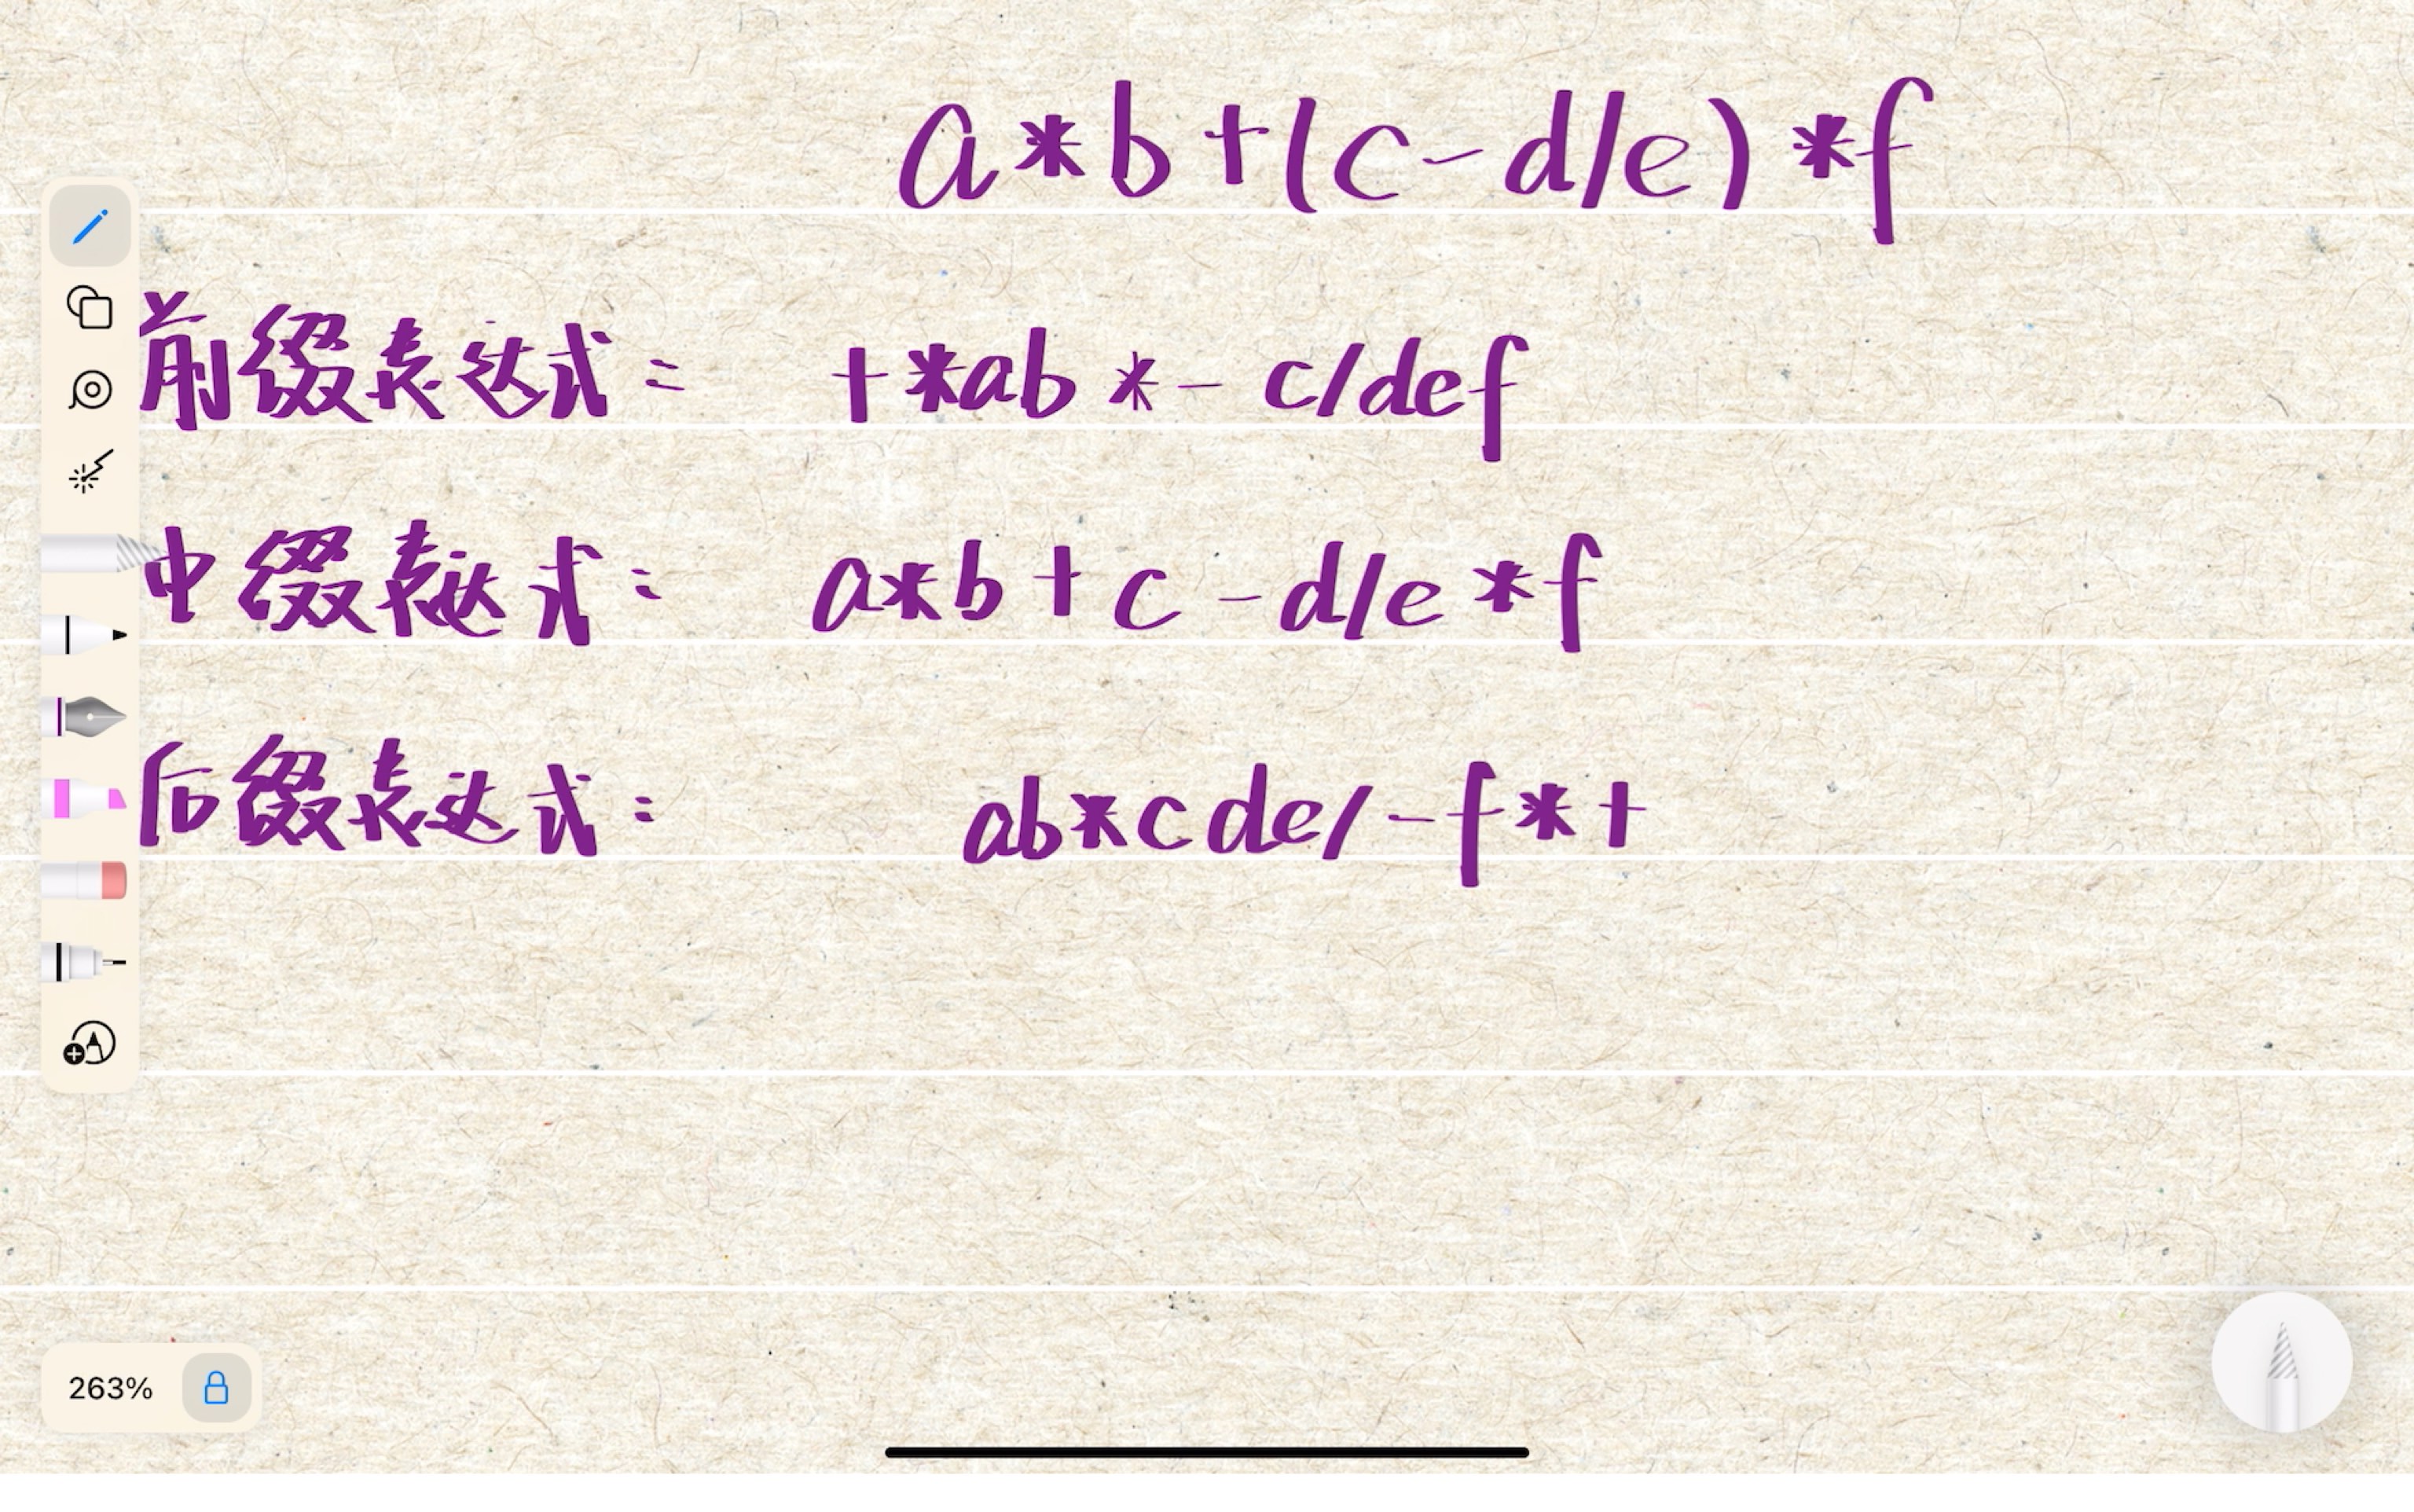 a*b+(c-d/e)*f
前缀表达式: +*ab*-c/def
中缀表达式: a*b+c-d/e*f
后缀表达式: ab*cde/-f*+
263%